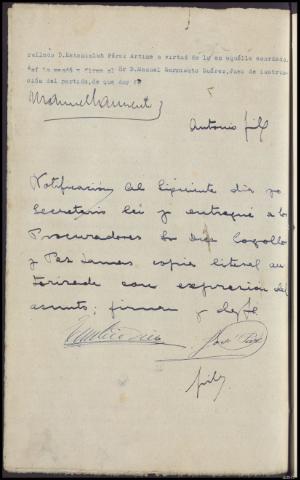 relinés D. Estanislat Pérez Artime a virtud de lo en aquélla acordado.
Así lo mandó y firma el Sr D. Manuel Sarmiento Suárez, Juez de instruc-
ción del partido, de que doy fé
Manuel Sarmiento
Antonio
Notificación Al siguiente dia yo
Secretario lei y entregué a los
Procuradores Sr Diez Cogollo
y Paz James copia literal au
torizada con expresion del
asunto; firman y doy fe